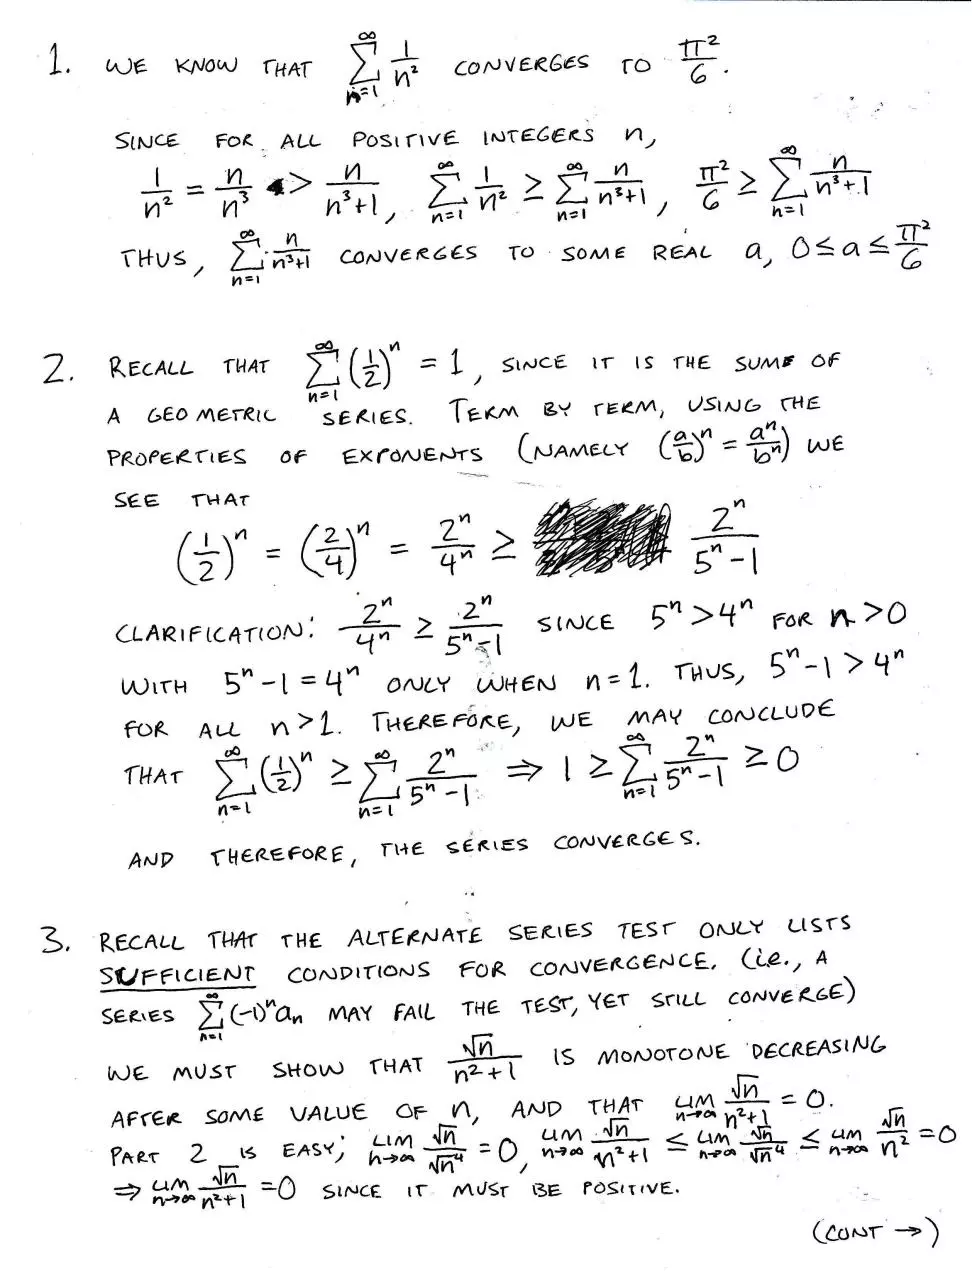 1. WE KNOW THAT ∑_{n=1}^{∞} 1/n² CONVERGES TO π²/6.
SINCE FOR ALL POSITIVE INTEGERS n,
1/n² = n/n³ > n/(n³+1), ∑_{n=1}^{∞} 1/n² ≥ ∑_{n=1}^{∞} n/(n³+1), π²/6 ≥ ∑_{n=1}^{∞} n/(n³+1)
THUS, ∑_{n=1}^{∞} n/(n³+1) CONVERGES TO SOME REAL a, 0≤a≤π²/6
2. RECALL THAT ∑_{n=1}^{∞} (1/2)ⁿ = 1, SINCE IT IS THE SUM OF
A GEOMETRIC SERIES. TERM BY TERM, USING THE
PROPERTIES OF EXPONENTS (NAMELY (a/b)ⁿ = aⁿ/bⁿ) WE
SEE THAT
(1/2)ⁿ = (2/4)ⁿ = 2ⁿ/4ⁿ ≥ 2ⁿ/(5ⁿ-1)
CLARIFICATION: 2ⁿ/4ⁿ ≥ 2ⁿ/(5ⁿ-1) SINCE 5ⁿ>4ⁿ FOR n>0
WITH 5ⁿ-1=4ⁿ ONLY WHEN n=1. THUS, 5ⁿ-1>4ⁿ
FOR ALL n>1. THEREFORE, WE MAY CONCLUDE
THAT ∑_{n=1}^{∞} (1/2)ⁿ ≥ ∑_{n=1}^{∞} 2ⁿ/(5ⁿ-1) ⇒ 1 ≥ ∑_{n=1}^{∞} 2ⁿ/(5ⁿ-1) ≥ 0
AND THEREFORE, THE SERIES CONVERGES.
3. RECALL THAT THE ALTERNATE SERIES TEST ONLY LISTS
SUFFICIENT CONDITIONS FOR CONVERGENCE. (i.e., A
SERIES ∑_{n=1}^{∞} (-1)ⁿaₙ MAY FAIL THE TEST, YET STILL CONVERGE)
WE MUST SHOW THAT √n/(n²+1) IS MONOTONE DECREASING
AFTER SOME VALUE OF n, AND THAT LIM_{n→∞} √n/(n²+1) = 0.
PART 2 IS EASY; LIM_{n→∞} √n/√n⁴ = 0, LIM_{n→∞} √n/(n²+1) ≤ LIM_{n→∞} √n/√n⁴ ≤ LIM_{n→∞} √n/n² = 0
⇒ LIM_{n→∞} √n/(n²+1) = 0 SINCE IT MUST BE POSITIVE.
(CONT →)